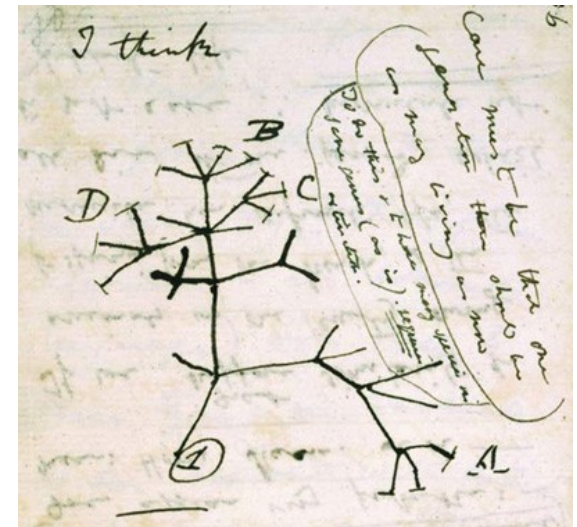 I think
B
C
D
A
1
36
Case must be that one
generation then should be
as many living as now
To do this & to have many species in
same genus (as is). requires
extinction.